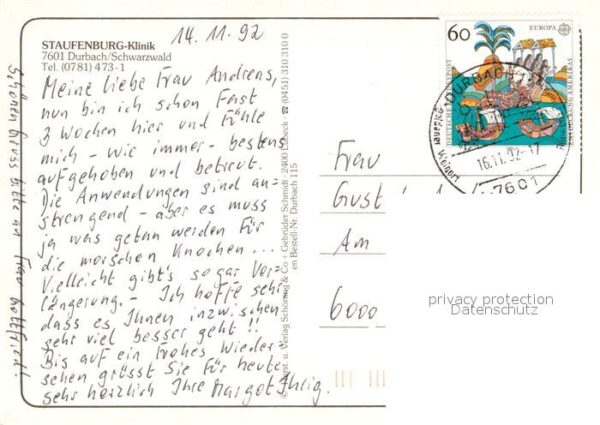 14.11.92
STAUFENBURG-Klinik
7601 Durbach/Schwarzwald
Tel. (0781) 473-1
Meine liebe Frau Andreas,
nun bin ich schon fast
3 Wochen hier und fühle
mich - wie immer - bestens
aufgehoben und betreut.
Die Anwendungen sind an-
strengend - aber es muss
ja was getan werden für
die morschen Knochen ...
Vielleicht gibt's sogar Ver-
längerung. - Ich hoffe sehr
dass es Ihnen inzwischen
sehr viel besser geht!!
Bis auf ein frohes Wieder-
sehen grüsst Sie für heute
sehr herzlich Ihre Margot Ihrig.
Schönen Gruss bitte an Frau
u. Verlag Schöning & Co · Gebrüder Schmidt · 2400 Lübeck ☎ (0451) 310 310 0
en Bestell-Nr. Durbach 115
60
EUROPA
DEUTSCHE BUNDESPOST
DURBACH
16.11.92-17
7601
Frau
Gust
Am
6000
privacy protection
Datenschutz